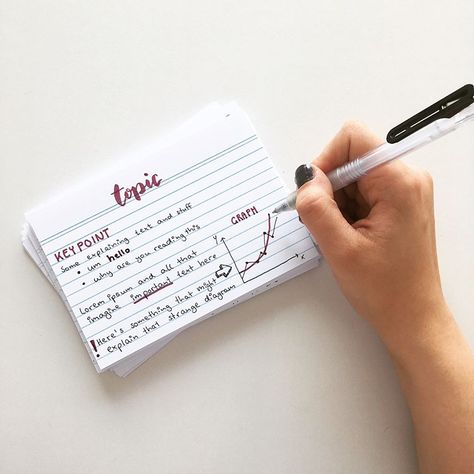 topic
KEY POINT
Some explaining text and stuff
• um.. hello
• why are you reading this
Lorem ipsum and all that
imagine important text here
! Here's something that might
explain that strange diagram
GRAPH
y
x